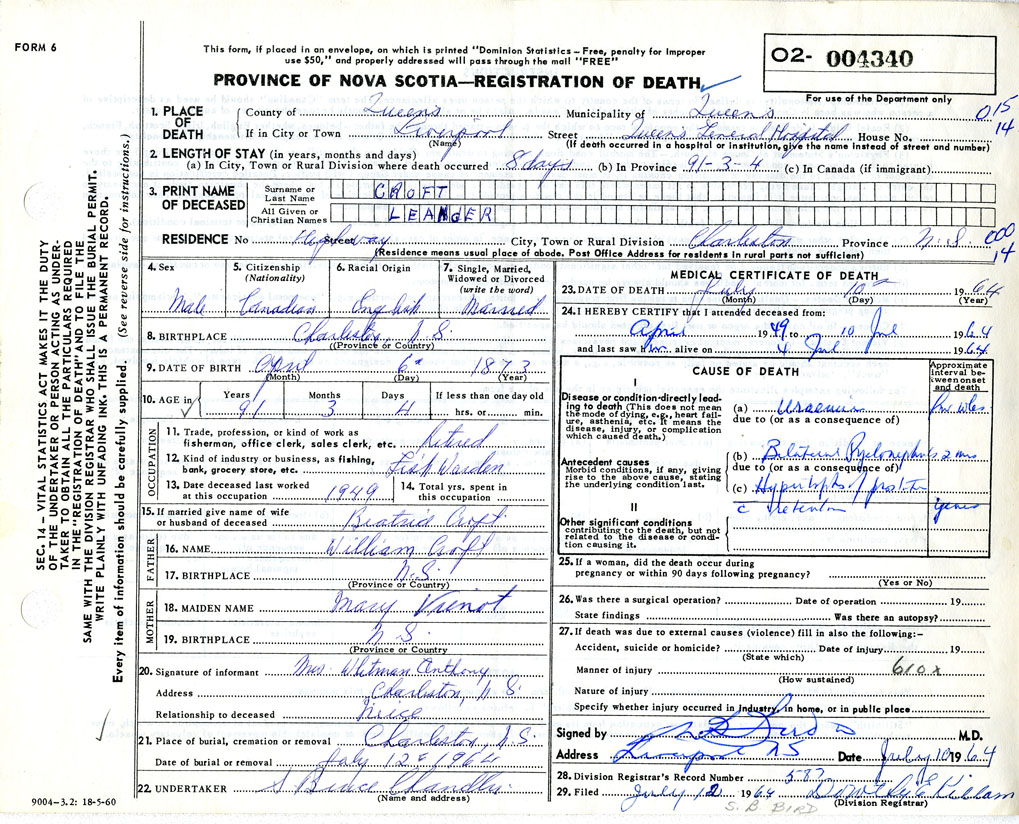 FORM 6
This form, if placed in an envelope, on which is printed "Dominion Statistics – Free, penalty for improper
use $50," and properly addressed will pass through the mail "FREE"
PROVINCE OF NOVA SCOTIA—REGISTRATION OF DEATH
O2- 004340
For use of the Department only
015
14
1. PLACE OF DEATH
County of Queens Municipality of Queens
If in City or Town Liverpool Street Queens General Hospital House No.
(Name) (If death occurred in a hospital or institution, give the name instead of street and number)
2. LENGTH OF STAY (in years, months and days)
(a) In City, Town or Rural Division where death occurred 8 days (b) In Province 91-3-4 (c) In Canada (if immigrant)
3. PRINT NAME OF DECEASED
Surname or Last Name CROFT
All Given or Christian Names LEANDER
RESIDENCE No Highway Street City, Town or Rural Division Charleston Province N.S. 000
14
(Residence means usual place of abode. Post Office Address for residents in rural parts not sufficient)
4. Sex Male
5. Citizenship (Nationality) Canadian
6. Racial Origin English
7. Single, Married, Widowed or Divorced (write the word) Married
8. BIRTHPLACE Charleston, N.S.
(Province or Country)
9. DATE OF BIRTH April 6th 1873
(Month) (Day) (Year)
10. AGE in Years 91 Months 3 Days 4 If less than one day old hrs. or min.
OCCUPATION
11. Trade, profession, or kind of work as
fisherman, office clerk, sales clerk, etc. Retired
12. Kind of industry or business, as fishing,
bank, grocery store, etc. Fish Warden
13. Date deceased last worked
at this occupation 1949
14. Total yrs. spent in
this occupation
15. If married give name of wife
or husband of deceased Beatrice Croft
FATHER
16. NAME William Croft
17. BIRTHPLACE N.S.
(Province or Country)
MOTHER
18. MAIDEN NAME Mary Vienot
19. BIRTHPLACE N.S.
(Province or Country
20. Signature of informant Mrs. Whitman Anthony
Address Charleston, N.S.
Relationship to deceased Niece
21. Place of burial, cremation or removal Charleston, N.S
Date of burial or removal July 12th 1964
22. UNDERTAKER S Bruce Chandler
(Name and address)
MEDICAL CERTIFICATE OF DEATH
23. DATE OF DEATH July 10th 1964
(Month) (Day) (Year)
24. I HEREBY CERTIFY that I attended deceased from:
April 1949 to 10 Jul 1964
and last saw him alive on 4 Jul 1964
CAUSE OF DEATH
Approximate interval between onset and death
I
Disease or condition directly leading to death (This does not mean the mode of dying, e.g., heart failure, asthenia, etc. It means the disease, injury, or complication which caused death.)
(a) Uraemia wks
due to (or as a consequence of)
Antecedent causes
Morbid conditions, if any, giving rise to the above cause, stating the underlying condition last.
(b) Bilateral Pyelonephritis 2 mos
due to (or as a consequence of)
(c) Hypertrophy prostate
c retention years
II
Other significant conditions
contributing to the death, but not related to the disease or condition causing it.
25. If a woman, did the death occur during
pregnancy or within 90 days following pregnancy?
(Yes or No)
26. Was there a surgical operation? Date of operation 19
State findings Was there an autopsy?
27. If death was due to external causes (violence) fill in also the following:–
Accident, suicide or homicide? Date of injury 19
(State which)
Manner of injury 610x
(How sustained)
Nature of injury
Specify whether injury occurred in industry, in home, or in public place
Signed by Bird M.D.
Address Liverpool NS Date July 10 1964
28. Division Registrar's Record Number 583
29. Filed July 12 1964 Killam
S. B. BIRD (Division Registrar)
SEC. 14 – VITAL STATISTICS ACT MAKES IT THE DUTY
OF THE UNDERTAKER OR PERSON ACTING AS UNDER-
TAKER TO OBTAIN ALL THE PARTICULARS REQUIRED
IN THE "REGISTRATION OF DEATH" AND TO FILE THE
SAME WITH THE DIVISION REGISTRAR WHO SHALL ISSUE THE BURIAL PERMIT.
WRITE PLAINLY WITH UNFADING INK. THIS IS A PERMANENT RECORD.
Every item of information should be carefully supplied. (See reverse side for instructions.)
9004-3.2: 18-5-60